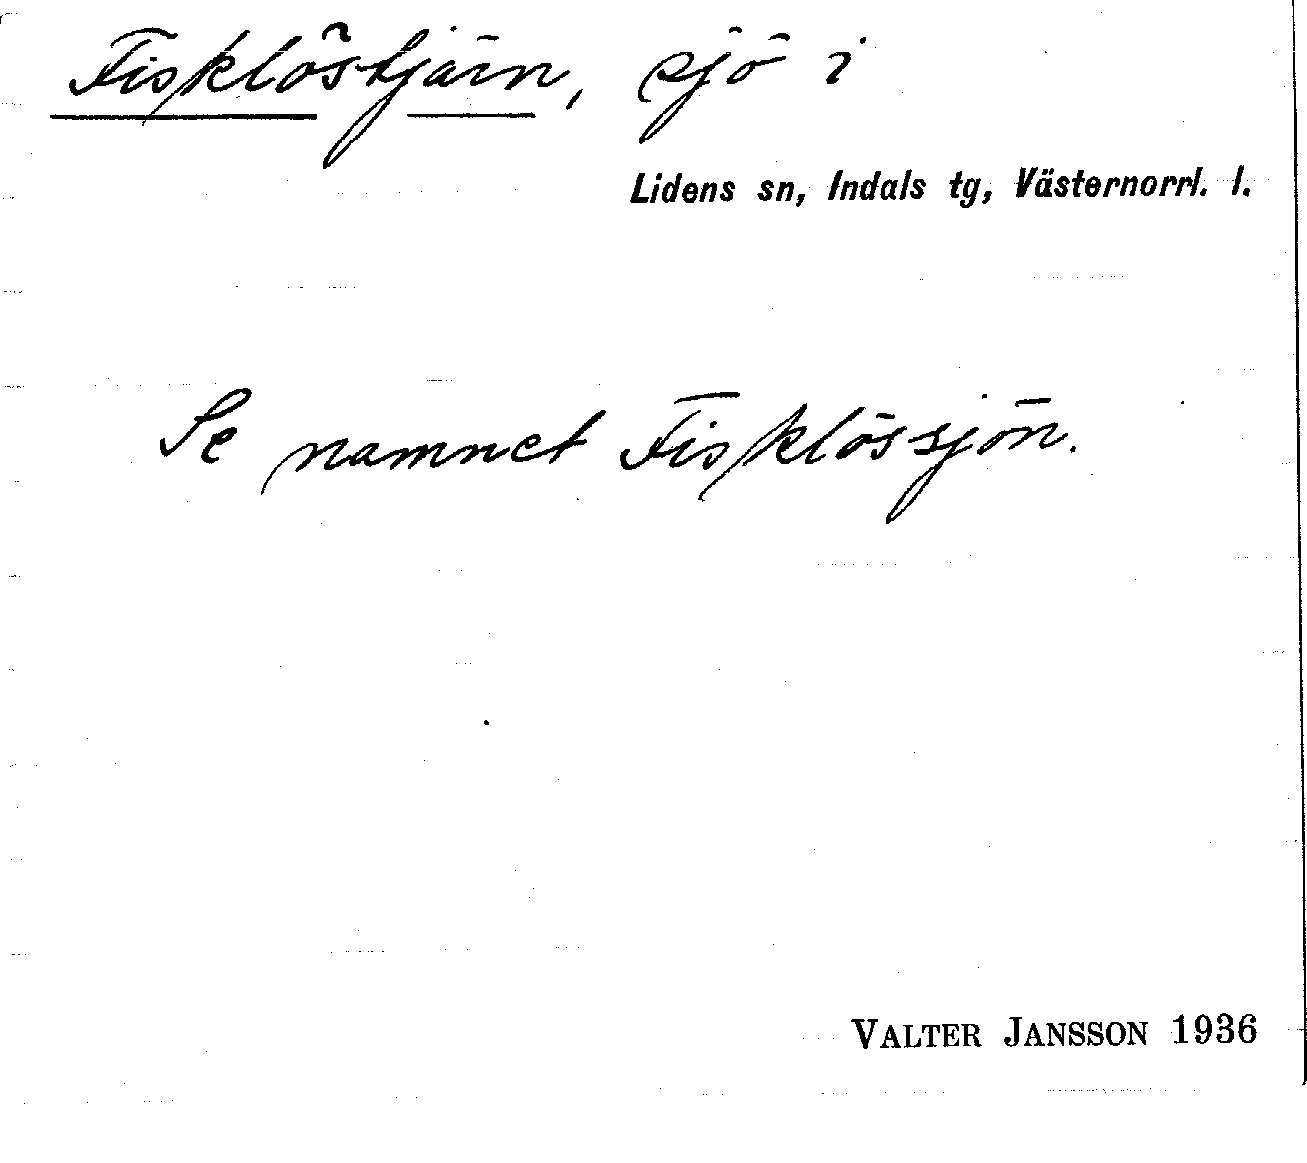 Fisklöstjärn, sjö i
Lidens sn, Indals tg, Västernorrl. l.
Se namnet Fisklössjön.
VALTER JANSSON 1936